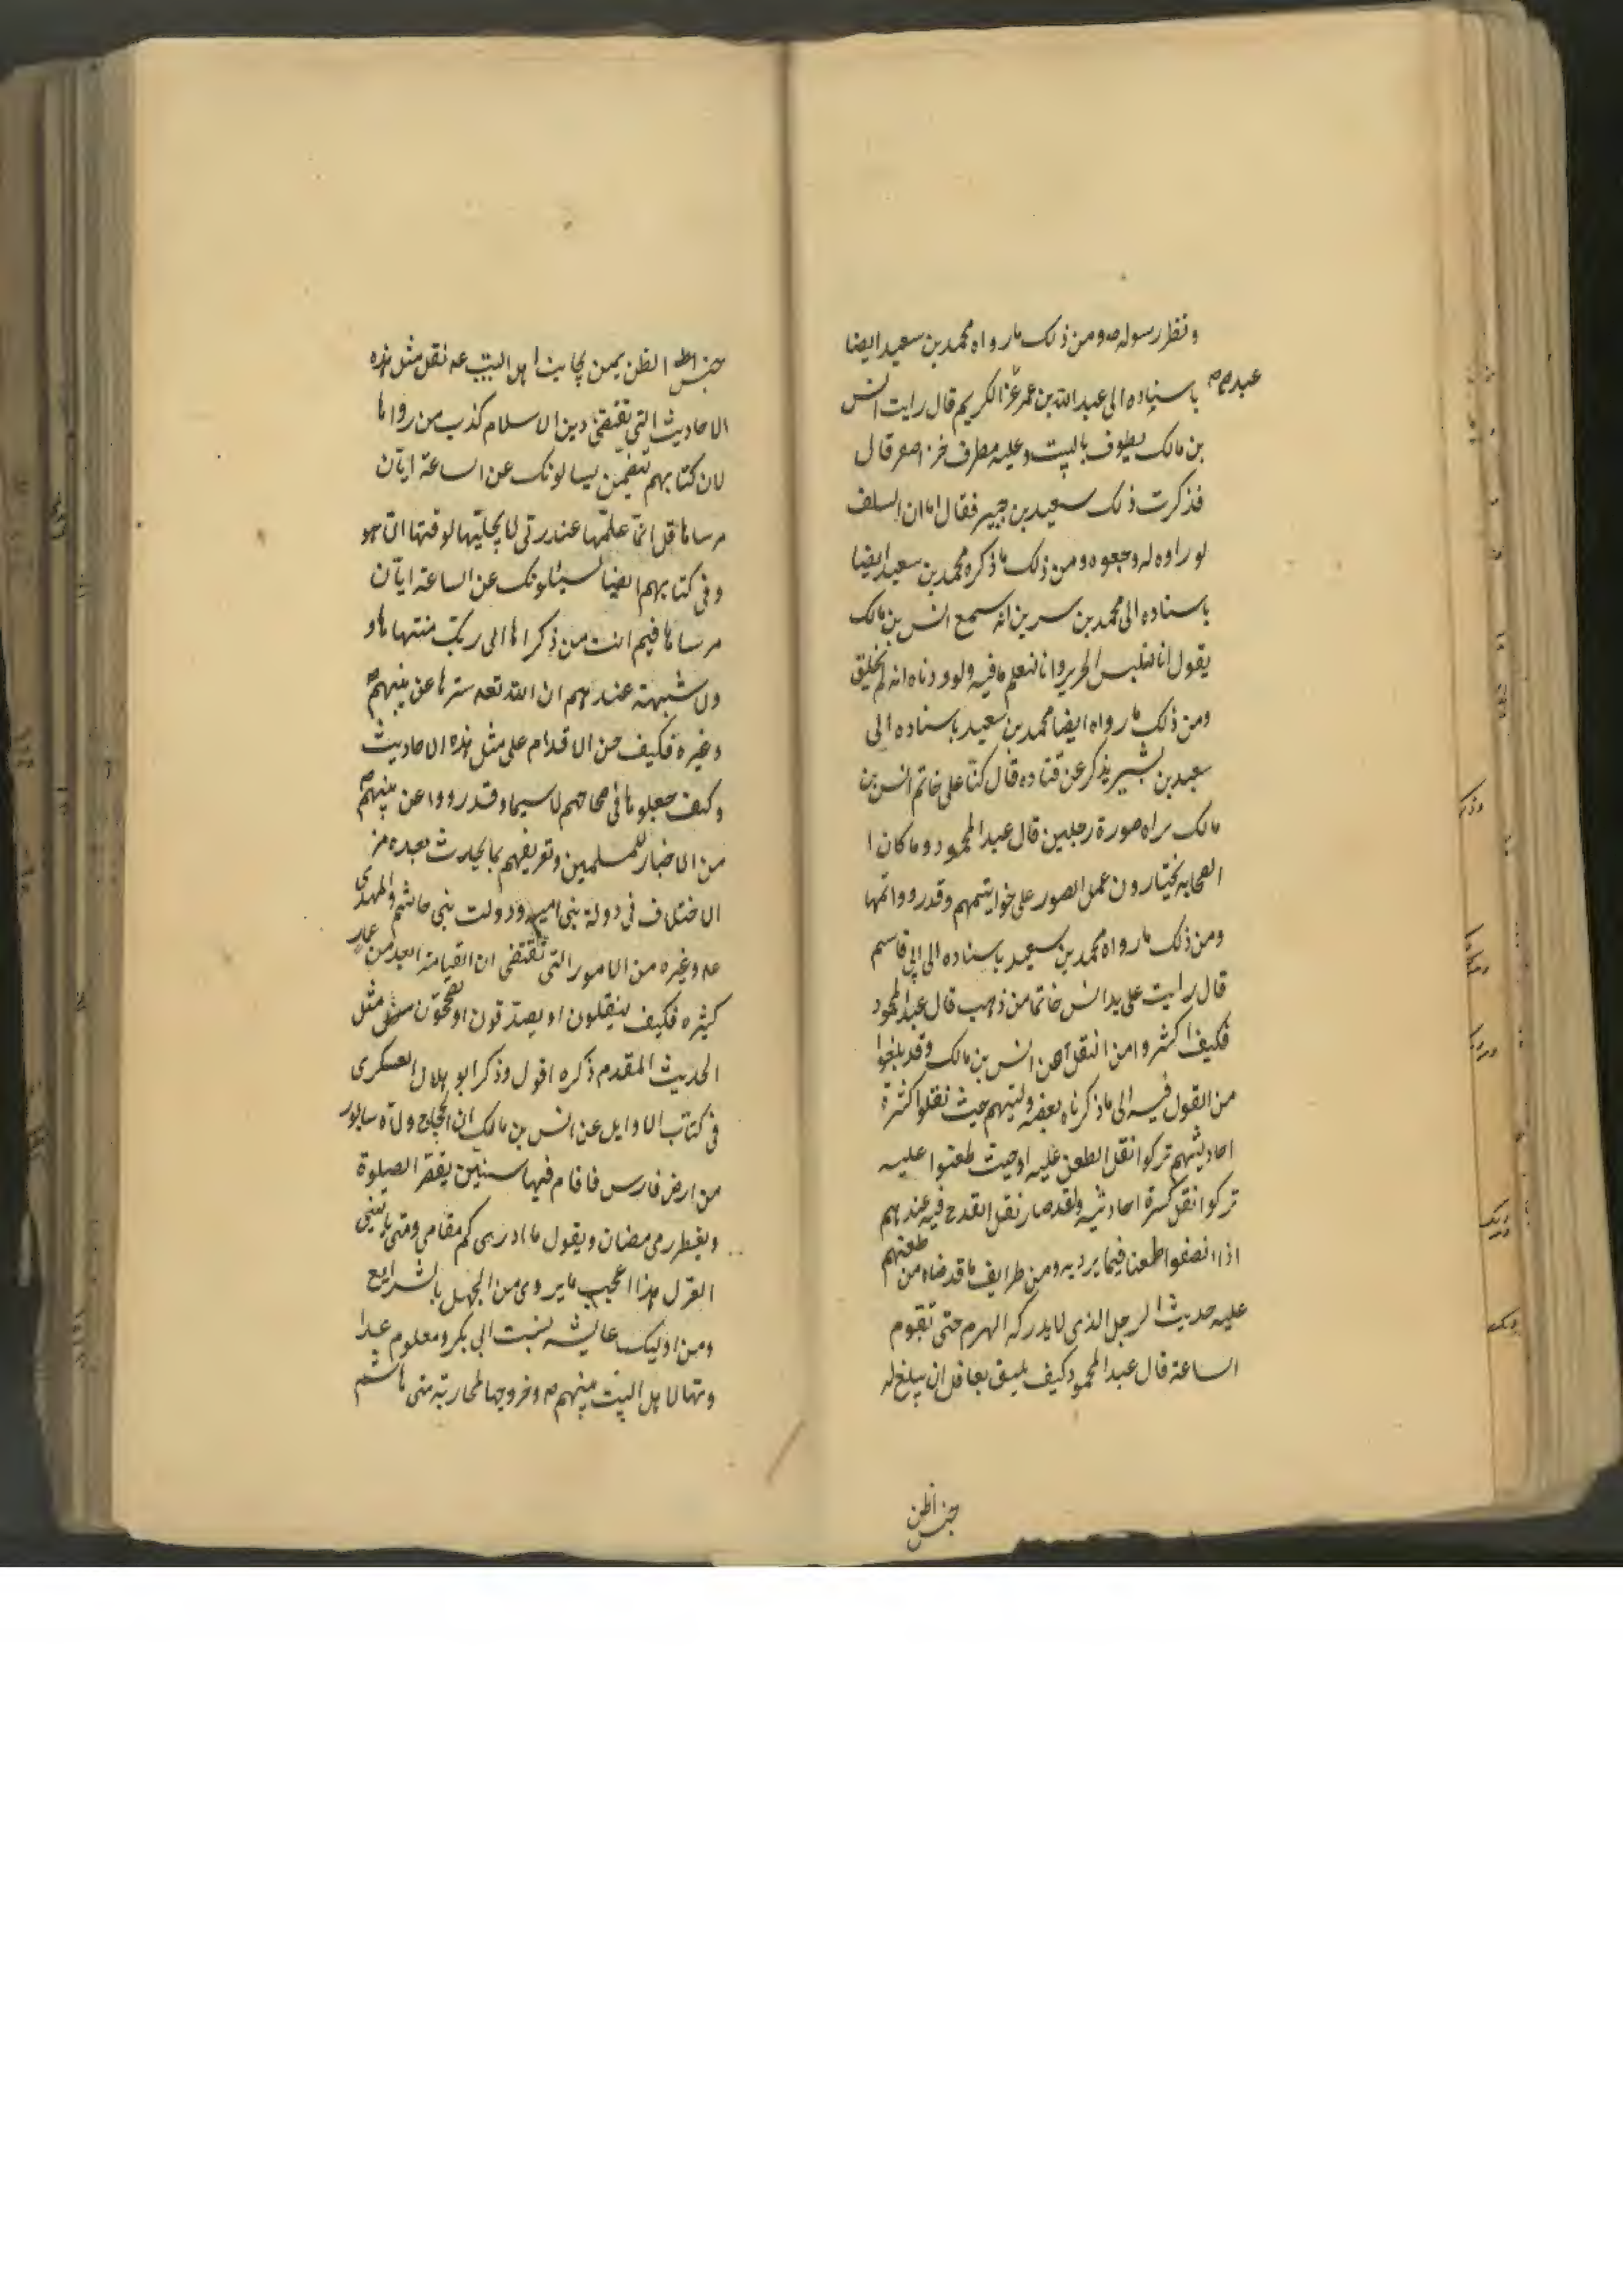 ونظر رسوله ص ومن ذلك ما رواه محمد بن سعيد ايضا
عبد ص
باسناده الى عبد الله بن عمر عن الكريم قال رايت انس
بن مالك يطوف بالبيت وعليه مطرف خز اصفر قال
فذكرت ذلك سعيد بن جبير فقال اما ان السلف
لو راوه له وجعوه ومن ذلك ما ذكره محمد بن سعيد ايضا
باسناده الى محمد بن سرين انه سمع انس بن مالك
يقول انا لنلبس الحرير وانا لنعلم ما فيه ولوددناه انه لم يخلق
ومن ذلك ما رواه ايضا محمد بن سعيد باسناده الى
سعيد بن بشير يذكر عن قتاده قال كنا على خاتم انس بن
مالك براه صورة رجلين قال عبد المحمود وما كان ا
الصحابه يختارون عمل الصور على خواتيمهم وقد رووا تمها
ومن ذلك ما رواه محمد بن سعيد باسناده الى ابي قاسم
قال رايت على يد انس خاتما من ذهب قال عبد المحمود
فكيف اكثروا من النقل عن انس بن مالك وقد بلغوا
من القول فيه الى ما ذكرناه بعضه وليتهم حيث نقلوا كثرة
احاديثهم تركوا نقل الطعن عليه او حيث طعنوا عليه
تركوا نقل كثرة احاديثه ولقد صار نقل القدح فيه عندهم
اذا انصفوا طعنا فيما يرديه ومن طرايف ما قد ضاه من طعنهم
عليه حديث الرجل الذي لا يدركه الهرم حتى تقوم
الساعة قال عبد المحمود كيف يليق بعاقل ان يبلغ له
خبس اظن
خبس الظن يمن يجانب اهل البيت عه نقل مثل هذه
الاحاديث التي تقتضي دين الاسلام كذب من رواها
لان كتابهم تتضمن يسالونك عن الساعة ايان
مرساها قل انما علمها عند ربي لا يجليها لوقتها الا هو
وفي كتابهم ايضا يسئلونك عن الساعة ايان
مرساها فيم انت من ذكراها الى ربك منتهاها و
ولا شبهة عندهم ان الله تعه سترها عن نبيهم ص
وغيره فكيف حسن الاقدام على مثل هذه الاحاديث
وكيف جعلوها في صحاحهم لا سيما وقد رووا عن نبيهم ص
من الاخبار للمسلمين وتعريفهم بما يحدث بعده من
الاختلاف في دولة بني امية ودولت بني هاشم والمهدي
عه وغيره من الامور التي تقتضي ان القيامة ابعد من عار
كثيره فكيف ينقلون او يصدقون او يصححون مثل
الحديث المقدم ذكره اقول وذكر ابو هلال العسكرى
في كتاب الاوايل عن انس بن مالك ان الحجاج ولاه سابور
من ارض فارس فاقام فيها سنين يقصر الصلوة
ويفطر رمضان ويقول ما ادرى كم مقامى ومتى ياتيني
العزل هذا اعجب ما يروى من الجهل بالشرايع
ومن اوليك عايشه بنت ابي بكر ومعلوم عدا
وتها لاهل البيت نبيهم ص وخروجها لمحاربة بني هاشم